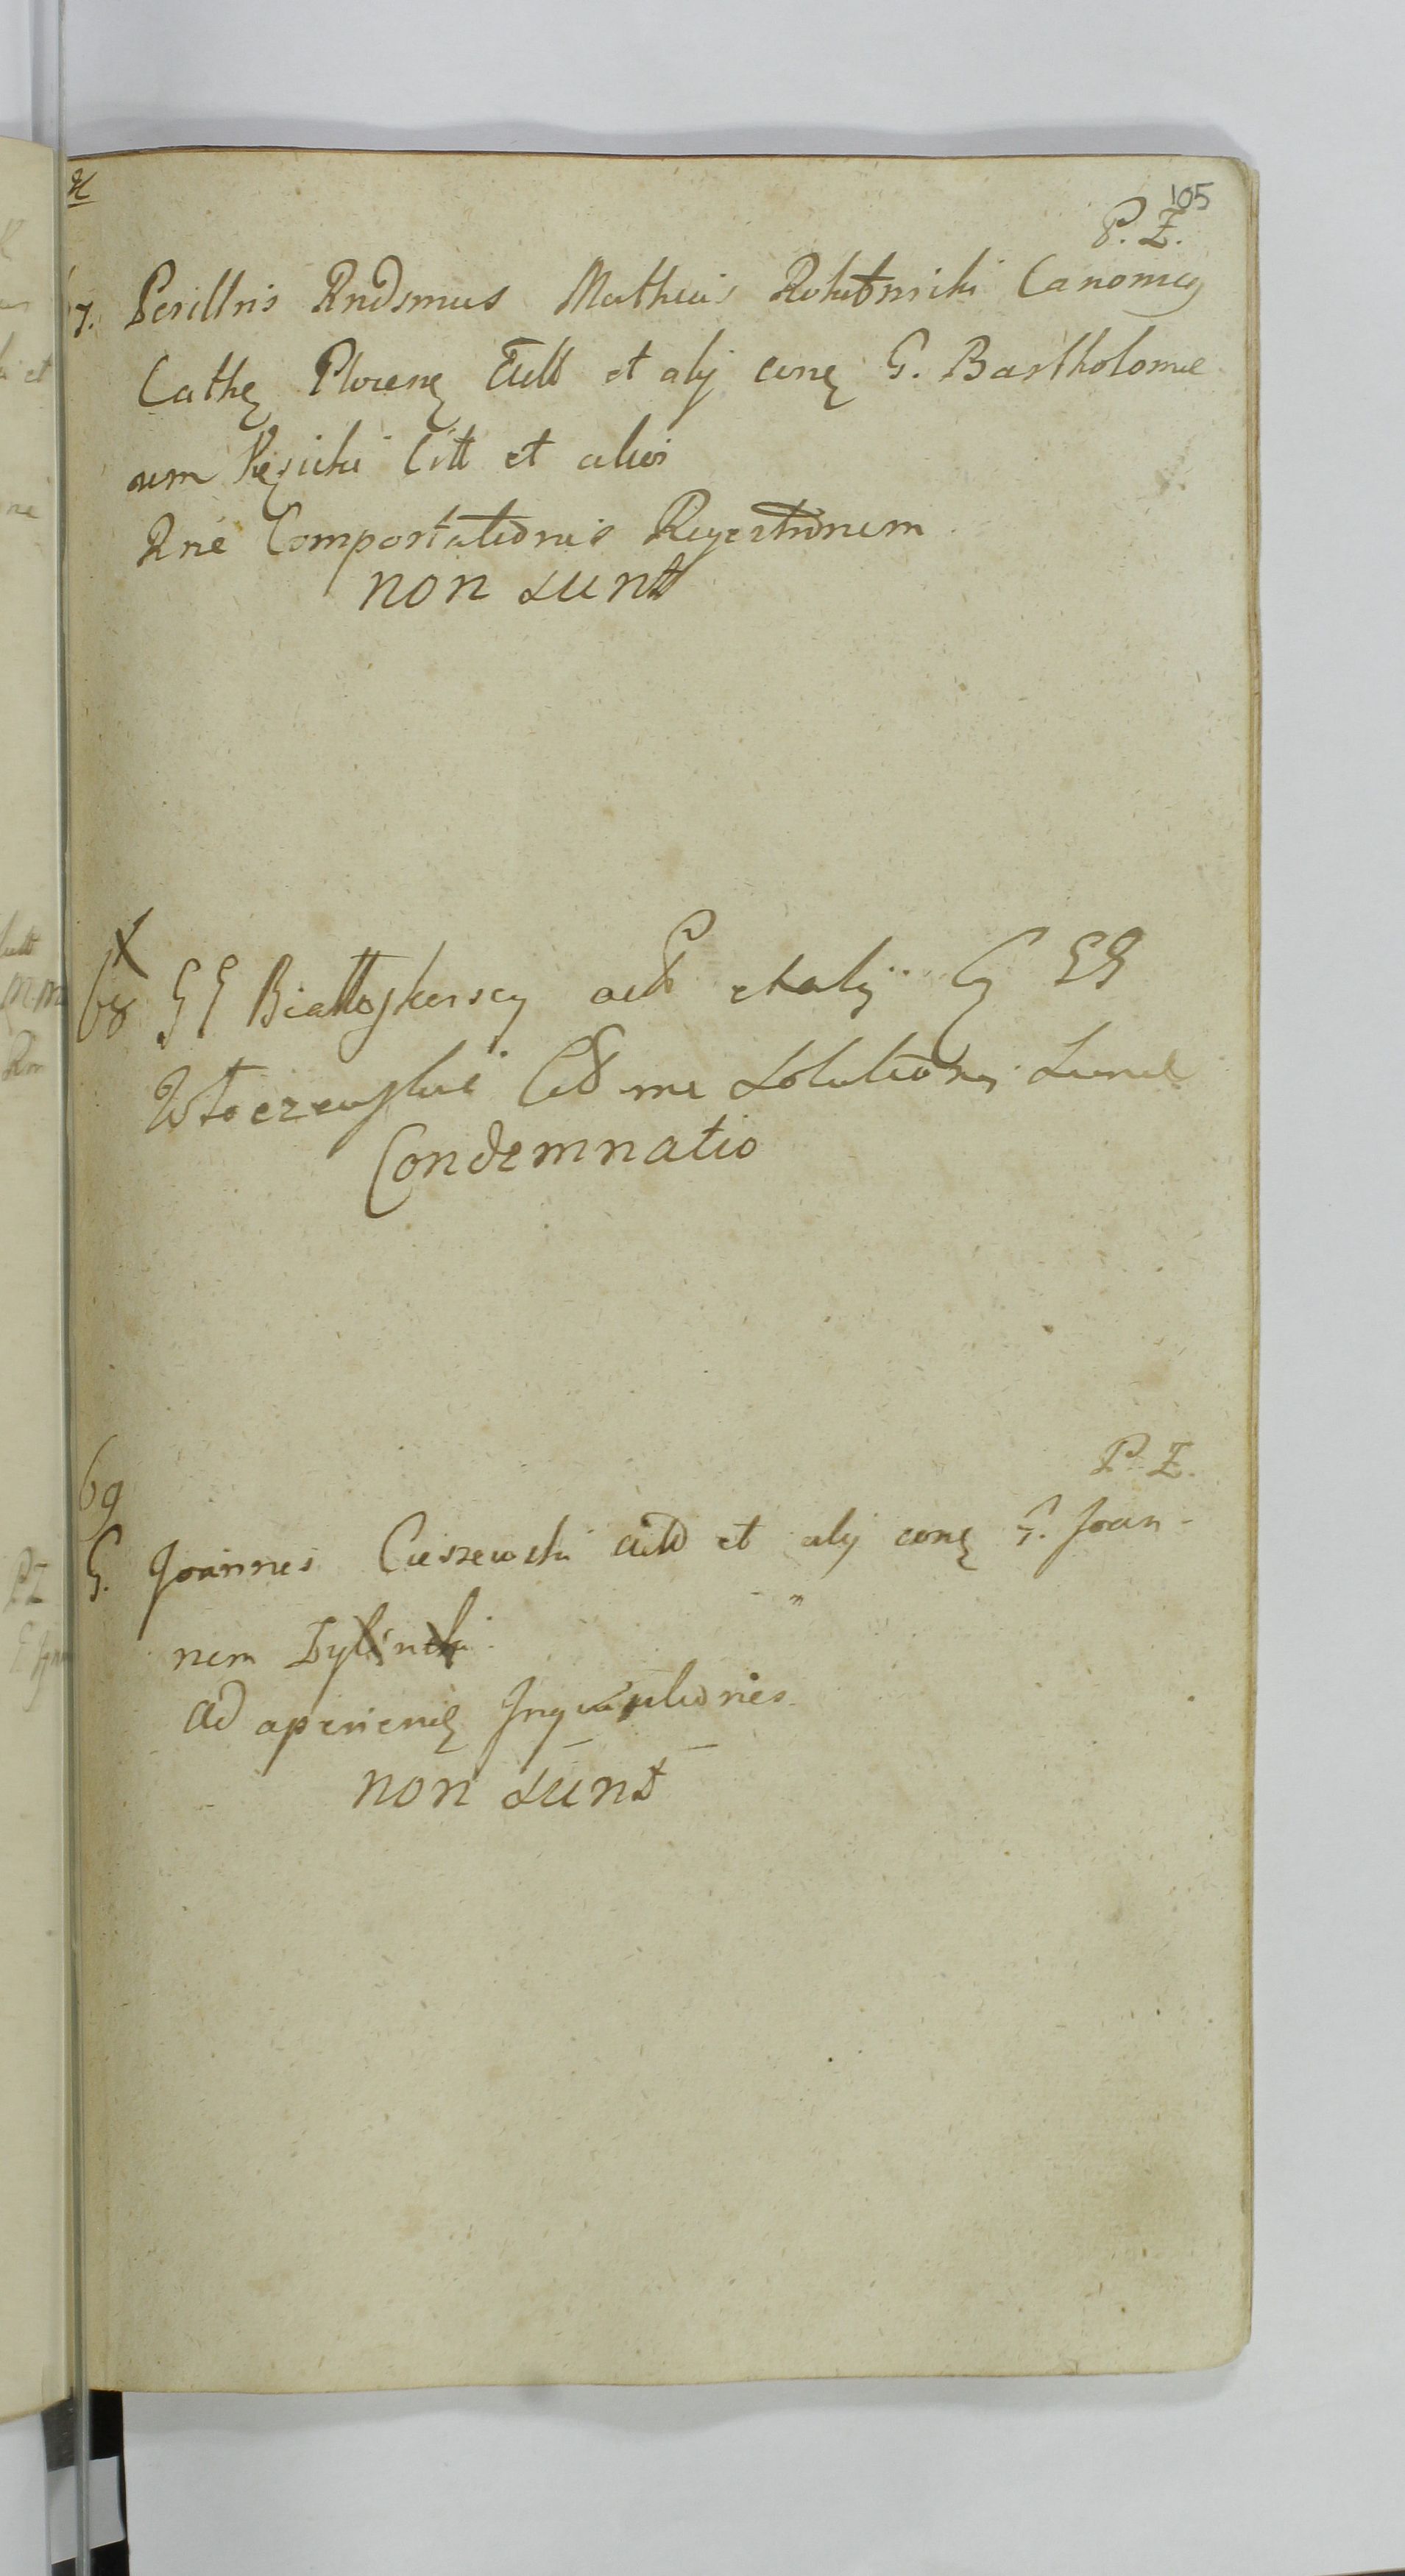 105
P. Z.
67. Perillris Rndsmus Matheus Rokitnicki Canonicq
Cathe Plocene Actt et alij conq G. Bartholome
um Citt et alios
Rne Comportationis Regestrorum
non sunt
68 GG Białłoskorscy act et alij Cq GG
Citt rne solutionis Sume
Condemnatio
P. Z.
69
G. Joannes Cieszewski Actt et alij conq G. Joan-
nem Zylinski
ad aperiend Inquisitiones
non sunt